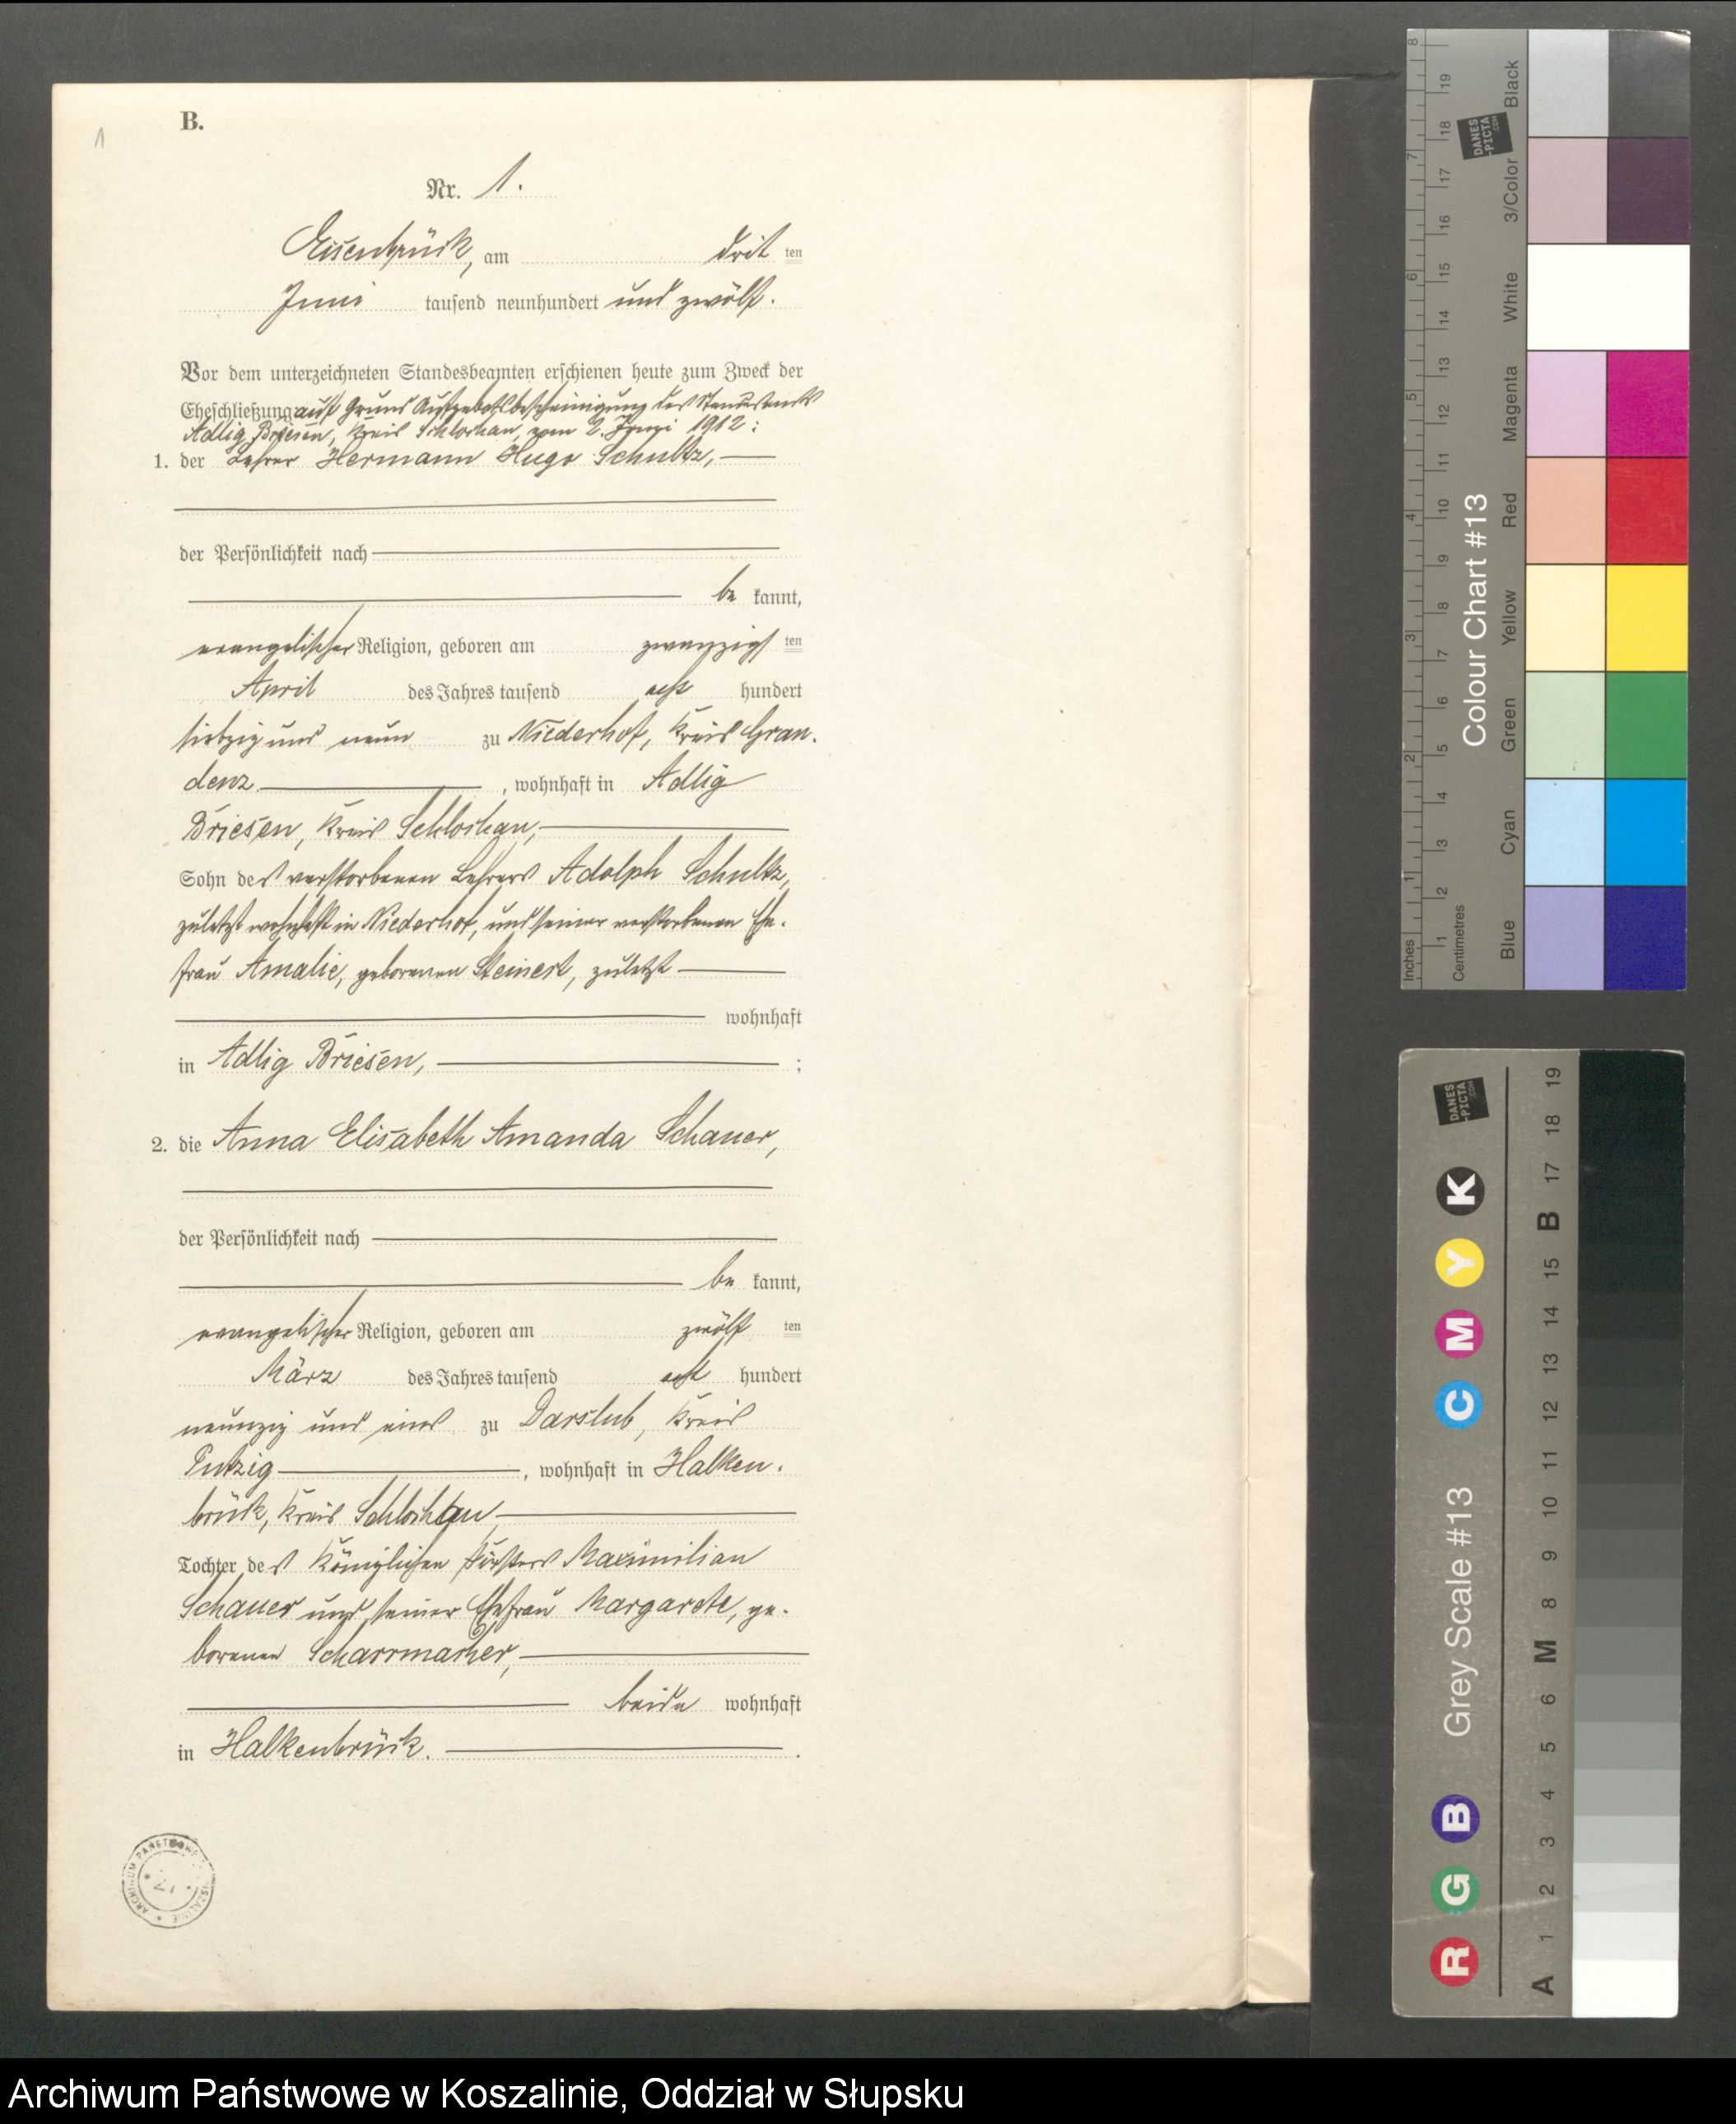 B.
1
Nr. 1.
Eisenbrück, am drit ten
Juni tausend neunhundert und zwölf.
Vor dem unterzeichneten Standesbeamten erschienen heute zum Zweck der
Eheschließung auf Grund Aufgebotsbescheinigung des Standesamts
Adlig Briesen, Kreis Schlochau, vom 2. Juni 1912:
1. der Lehrer Hermann Hugo Schultz,
der Persönlichkeit nach
be kannt,
evangelischer Religion, geboren am zwanzigs ten
April des Jahres tausend acht hundert
siebzig und neun zu Niederhof, Kreis Grau-
denz , wohnhaft in Adlig
Briesen, Kreis Schlochau,
Sohn des verstorbenen Lehrers Adolph Schultz,
zuletzt wohnhaft in Niederhof, und seiner verstorbenen Ehe-
frau Amalie, geborenen Steinert, zuletzt
wohnhaft
in Adlig Briesen, ;
2. die Anna Elisabeth Amanda Schauer,
der Persönlichkeit nach
be kannt,
evangelischer Religion, geboren am zwölf ten
März des Jahres tausend acht hundert
neunzig und eins zu Darslub, Kreis
Putzig , wohnhaft in Halken-
brück, Kreis Schlochau,
Tochter des Königlichen Försters Maximilian
Schauer und seiner Ehefrau Margarete, ge-
borenen Scharrmacher,
beide wohnhaft
in Halkenbrück. .
ARCHIWUM PAŃSTWOWE
Inches
1 2 3 4 5 6 7 8
Centimetres
1 2 3 4 5 6 7 8 9 10 11 12 13 14 15 16 17 18 19
Colour Chart #13
Blue Cyan Green Yellow Red Magenta White 3/Color Black
DANES
-PICTA
.COM
Grey Scale #13
R G B C M Y K
A 1 2 3 4 5 6 M 8 9 10 11 12 13 14 15 B 17 18 19
DANES
-PICTA
.COM
Archiwum Państwowe w Koszalinie, Oddział w Słupsku